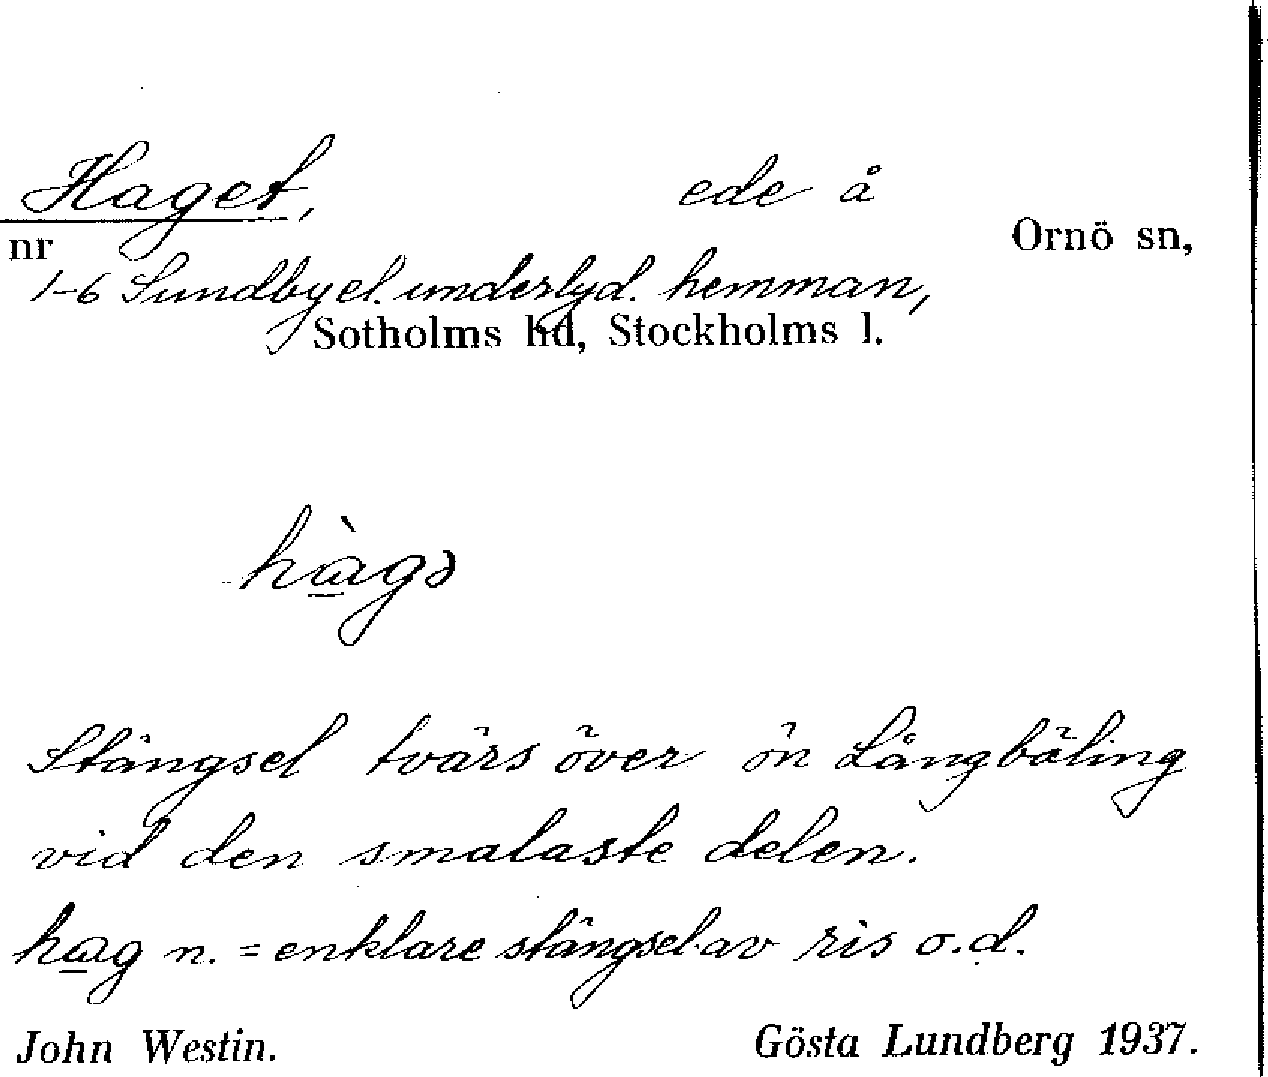 Haget, ede å
nr Ornö sn,
1-6 Sundby el. underlyd. hemman,
Sotholms hd, Stockholms l.
hàgə
Stängsel tvärs över ön Långbäling
vid den smalaste delen.
hag n. = enklare stängsel av ris o.d.
John Westin. Gösta Lundberg 1937.